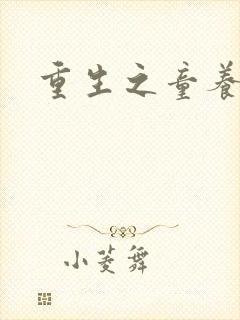 重生之童养
小菱舞